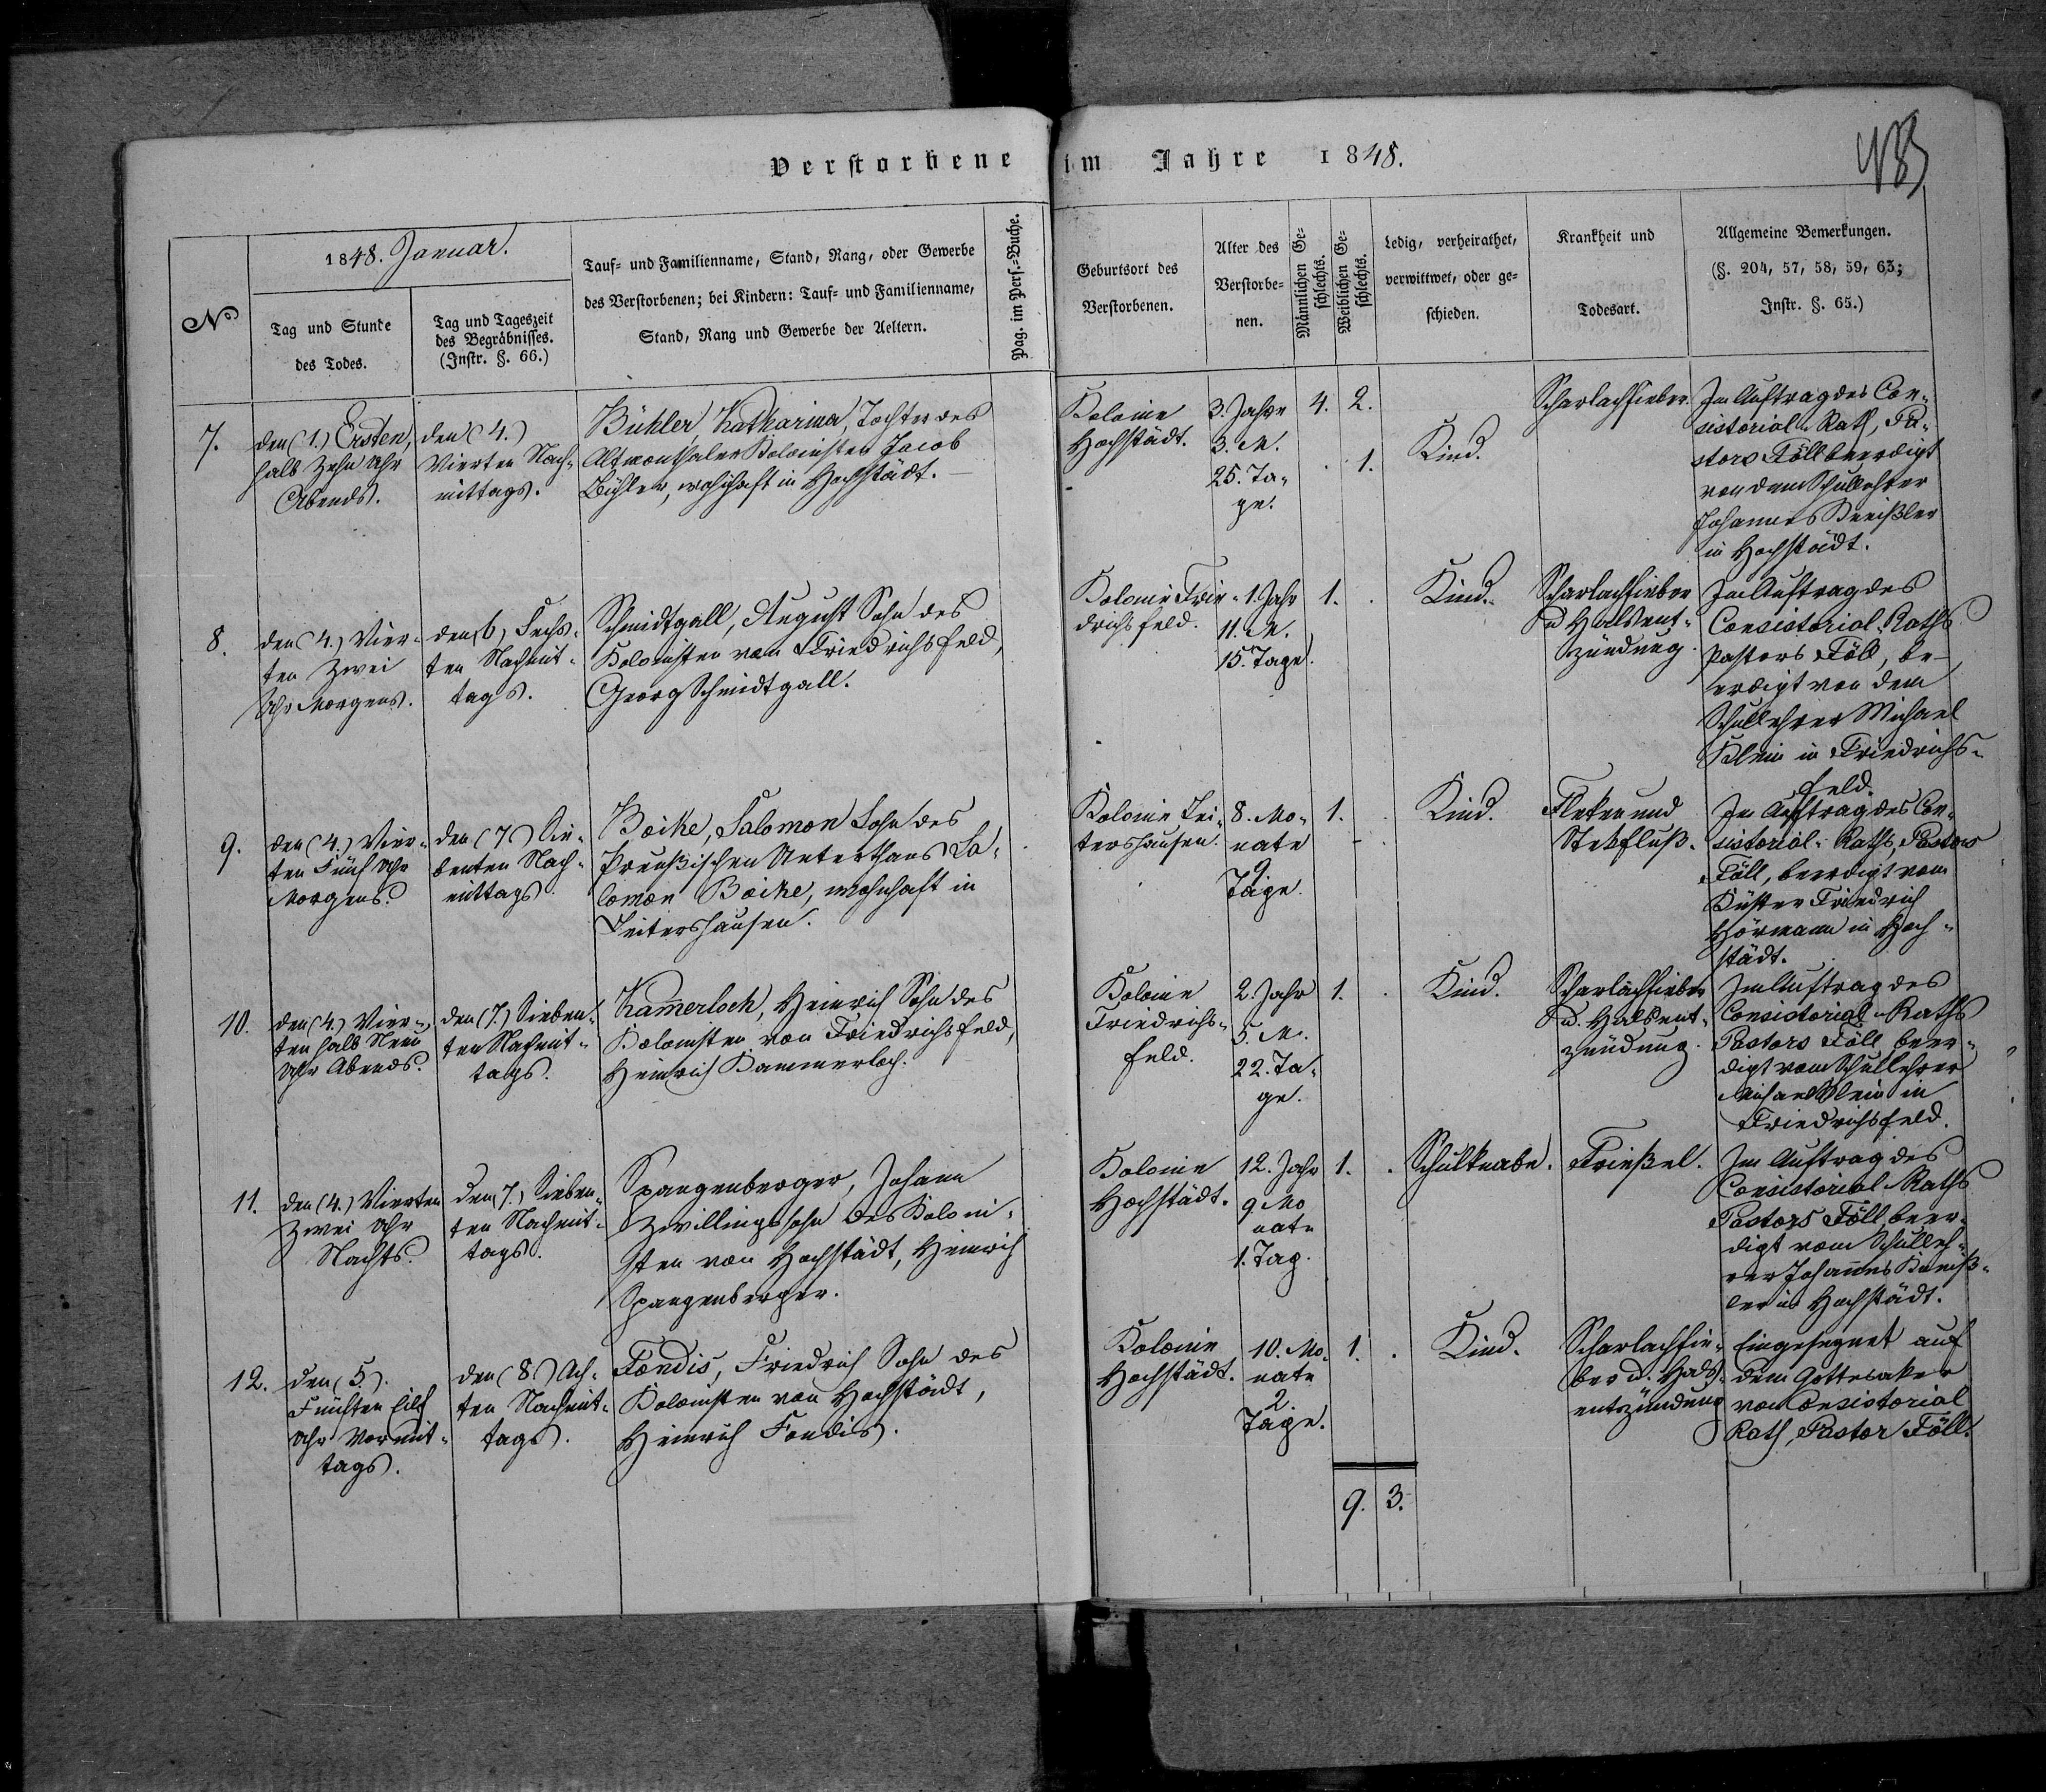 Verstorbene im Jahre 1848.
483
No
1848. Januar.
Tag und Stunde
des Todes.
Tag und Tageszeit
des Begräbnisses.
(Instr. §. 66.)
Tauf- und Familienname, Stand, Rang, oder Gewerbe
des Verstorbenen; bei Kindern: Tauf- und Familienname,
Stand, Rang und Gewerbe der Aeltern.
Pag. im Pers.-Buche.
Geburtsort des
Verstorbenen.
Alter des
Verstorbe-
nen.
Männlichen Ge-
schlechts.
Weiblichen Ge-
schlechts.
Ledig, verheirathet,
verwittwet, oder ge-
schieden.
Krankheit und
Todesart.
Allgemeine Bemerkungen.
(§. 204, 57, 58, 59, 63;
Instr. §. 65.)
7.
den (1.) Ersten,
halb Zehn Uhr
Abends.
den (4.)
Vierten Nach-
mittags.
Bühler, Katharina, Tochter des
Altmonthaler Kolonisten Jacob
Bühler, wohnhaft in Hochstädt.
Kolonie
Hochstädt.
3. Jahre
3. M.
25. Ta-
ge.
4. 2.
1.
Kind.
Scharlachfieber.
Im Auftrag des Con-
sistorial-Rath, Pa-
stors Föll beerdigt
von dem Schullehrer
Johannes Kneißler
in Hochstädt.
8.
den (4.) Vier-
ten Zwei
Uhr Morgens.
den (6.) Sechs-
ten Nachmit-
tags.
Schmidtgall, August Sohn des
Kolonisten von Friedrichsfeld,
Georg Schmidtgall.
Kolonie Frie-
drichsfeld.
1. Jahr
11. M.
15. Tage.
1.
Kind.
Scharlachfieber
u Halsent-
zündung.
Im Auftrag des
Consistorial-Raths
Pastors Föll, be-
erdigt von dem
Schullehrer Michael
Klein in Friedrichs-
feld.
9.
den (4.) Vier-
ten Fünf Uhr
Morgens.
den (7.) Sie-
benten Nach-
mittags.
Boike, Salomon Sohn des
Preußischen Unterthans Sa-
lomon Boike, wohnhaft in
Leitershausen.
Kolonie Lei-
tershausen.
8. Mo-
nate
9
Tage.
1.
Kind.
Fleken und
Stekfluß.
Im Auftrag des Con-
sistorial-Raths, Pastors
Föll, beerdigt vom
Küster Friedrich
Hörmann in Hoch-
städt.
10.
den (4.) Vier-
ten halb Neun
Uhr Abends.
den (7.) Sieben-
ten Nachmit-
tags.
Kam̅erloch, Heinrich Sohn des
Kolonisten von Friedrichsfeld,
Heinrich Kammerloch.
Kolonie
Friedrichs-
feld.
2. Jahr
5. M.
22. Ta-
ge.
1.
Kind.
Scharlachfieber
u. Halsent-
zündung.
Im Auftrag des
Consistorial-Raths
Pastors Föll beer-
digt vom Schullehrer
Michael Klein in
Friedrichsfeld.
11.
den (4.) Vierten
Zwei Uhr
Nachts.
den (7.) Sieben-
ten Nachmit-
tags.
Spangenberger, Johann
Zwillingssohn des Koloni-
sten von Hochstädt, Heinrich
Spangenberger.
Kolonie
Hochstädt.
12. Jahr
9 Mo
nate
1. Tag.
1.
Schulknabe.
Frießel.
Im Auftrag des
Consistorial-Raths
Pastors Föll beer-
digt vom Schulleh-
rer Johan̅es Kneiß-
ler in Hochstädt.
12.
den (5).
Fünften Eilf
Uhr Vormit-
tags.
den (8.) Ach-
ten Nachmit-
tags.
Fondis, Friedrich Sohn des
Kolonisten von Hochstädt,
Heinrich Fondis.
Kolonie
Hochstädt.
10. Mo-
nate
2.
Tage.
1.
Kind.
Scharlachfie-
ber u. Hals-
entzündung
Eingesegnet auf
dem Gottesaker
von Consistorial
Rath, Pastor Föll.
9. 3.